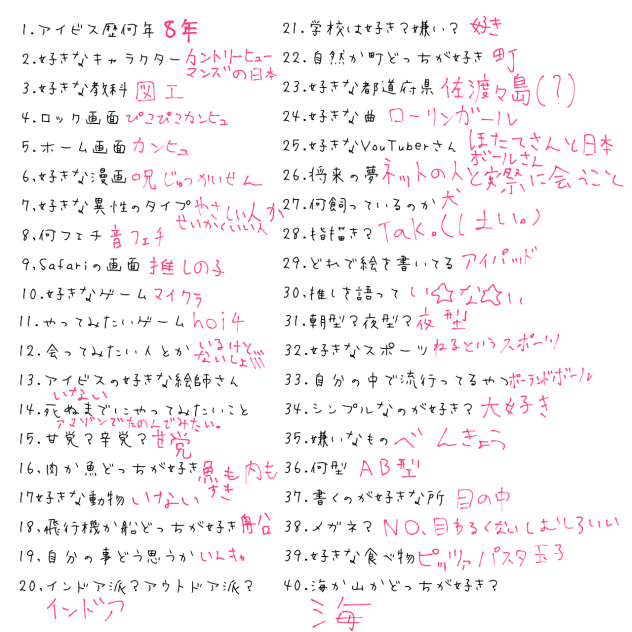 1.アイビス歴何年 8年
2.好きなキャラクター カントリーヒューマンズの日本
3.好きな教科 図工
4.ロック画面 ぴこぴこカンヒュ
5.ホーム画面 カンヒュ
6.好きな漫画 呪じゅつかいせん
7.好きな異性のタイプ やさしい人か せいかくいい人
8.何フェチ 音フェチ
9.Safariの画面 推しの子
10.好きなゲーム マイクラ
11.やってみたいゲーム hoi4
12.会ってみたい人とか いるけどないしょ!!!
13.アイビスの好きな絵師さん いない
14.死ぬまでにやってみたいこと アマゾンでたのんでみたい。
15.甘党?辛党? 甘党
16.肉か魚どっちが好き 魚も肉もすき
17好きな動物 いけない
18.飛行機か船どっちが好き 船
19.自分の事どう思うか いんキャ
20.インドア派?アウトドア派? インドア
21.学校は好き?嫌い? 好き
22.自然か町どっちが好き 町
23.好きな都道府県 佐渡々島(?)
24.好きな曲 ローリンガール
25.好きなYouTuberさん ほたてさんと日本ボールさん
26.将来の夢 ネットの人と実際に会うこと
27.何飼っているのか 犬
28.指描き? Tak。(しまい。)
29.どれで絵を書いてる アイパッド
30.推しを語って い☆な☆い
31.朝型?夜型? 夜型
32.好きなスポーツ ねるというスポーツ
33.自分の中で流行ってるやつ ポーランドボール
34.シンプルなのが好き? 大好き
35.嫌いなもの べんきょう
36.何型 AB型
37.書くのが好きな所 目の中
38.メガネ? NO、目わるくないしむしろいい
39.好きな食べ物 ピッツァパスタ玉子
40.海か山かどっちが好き? 海